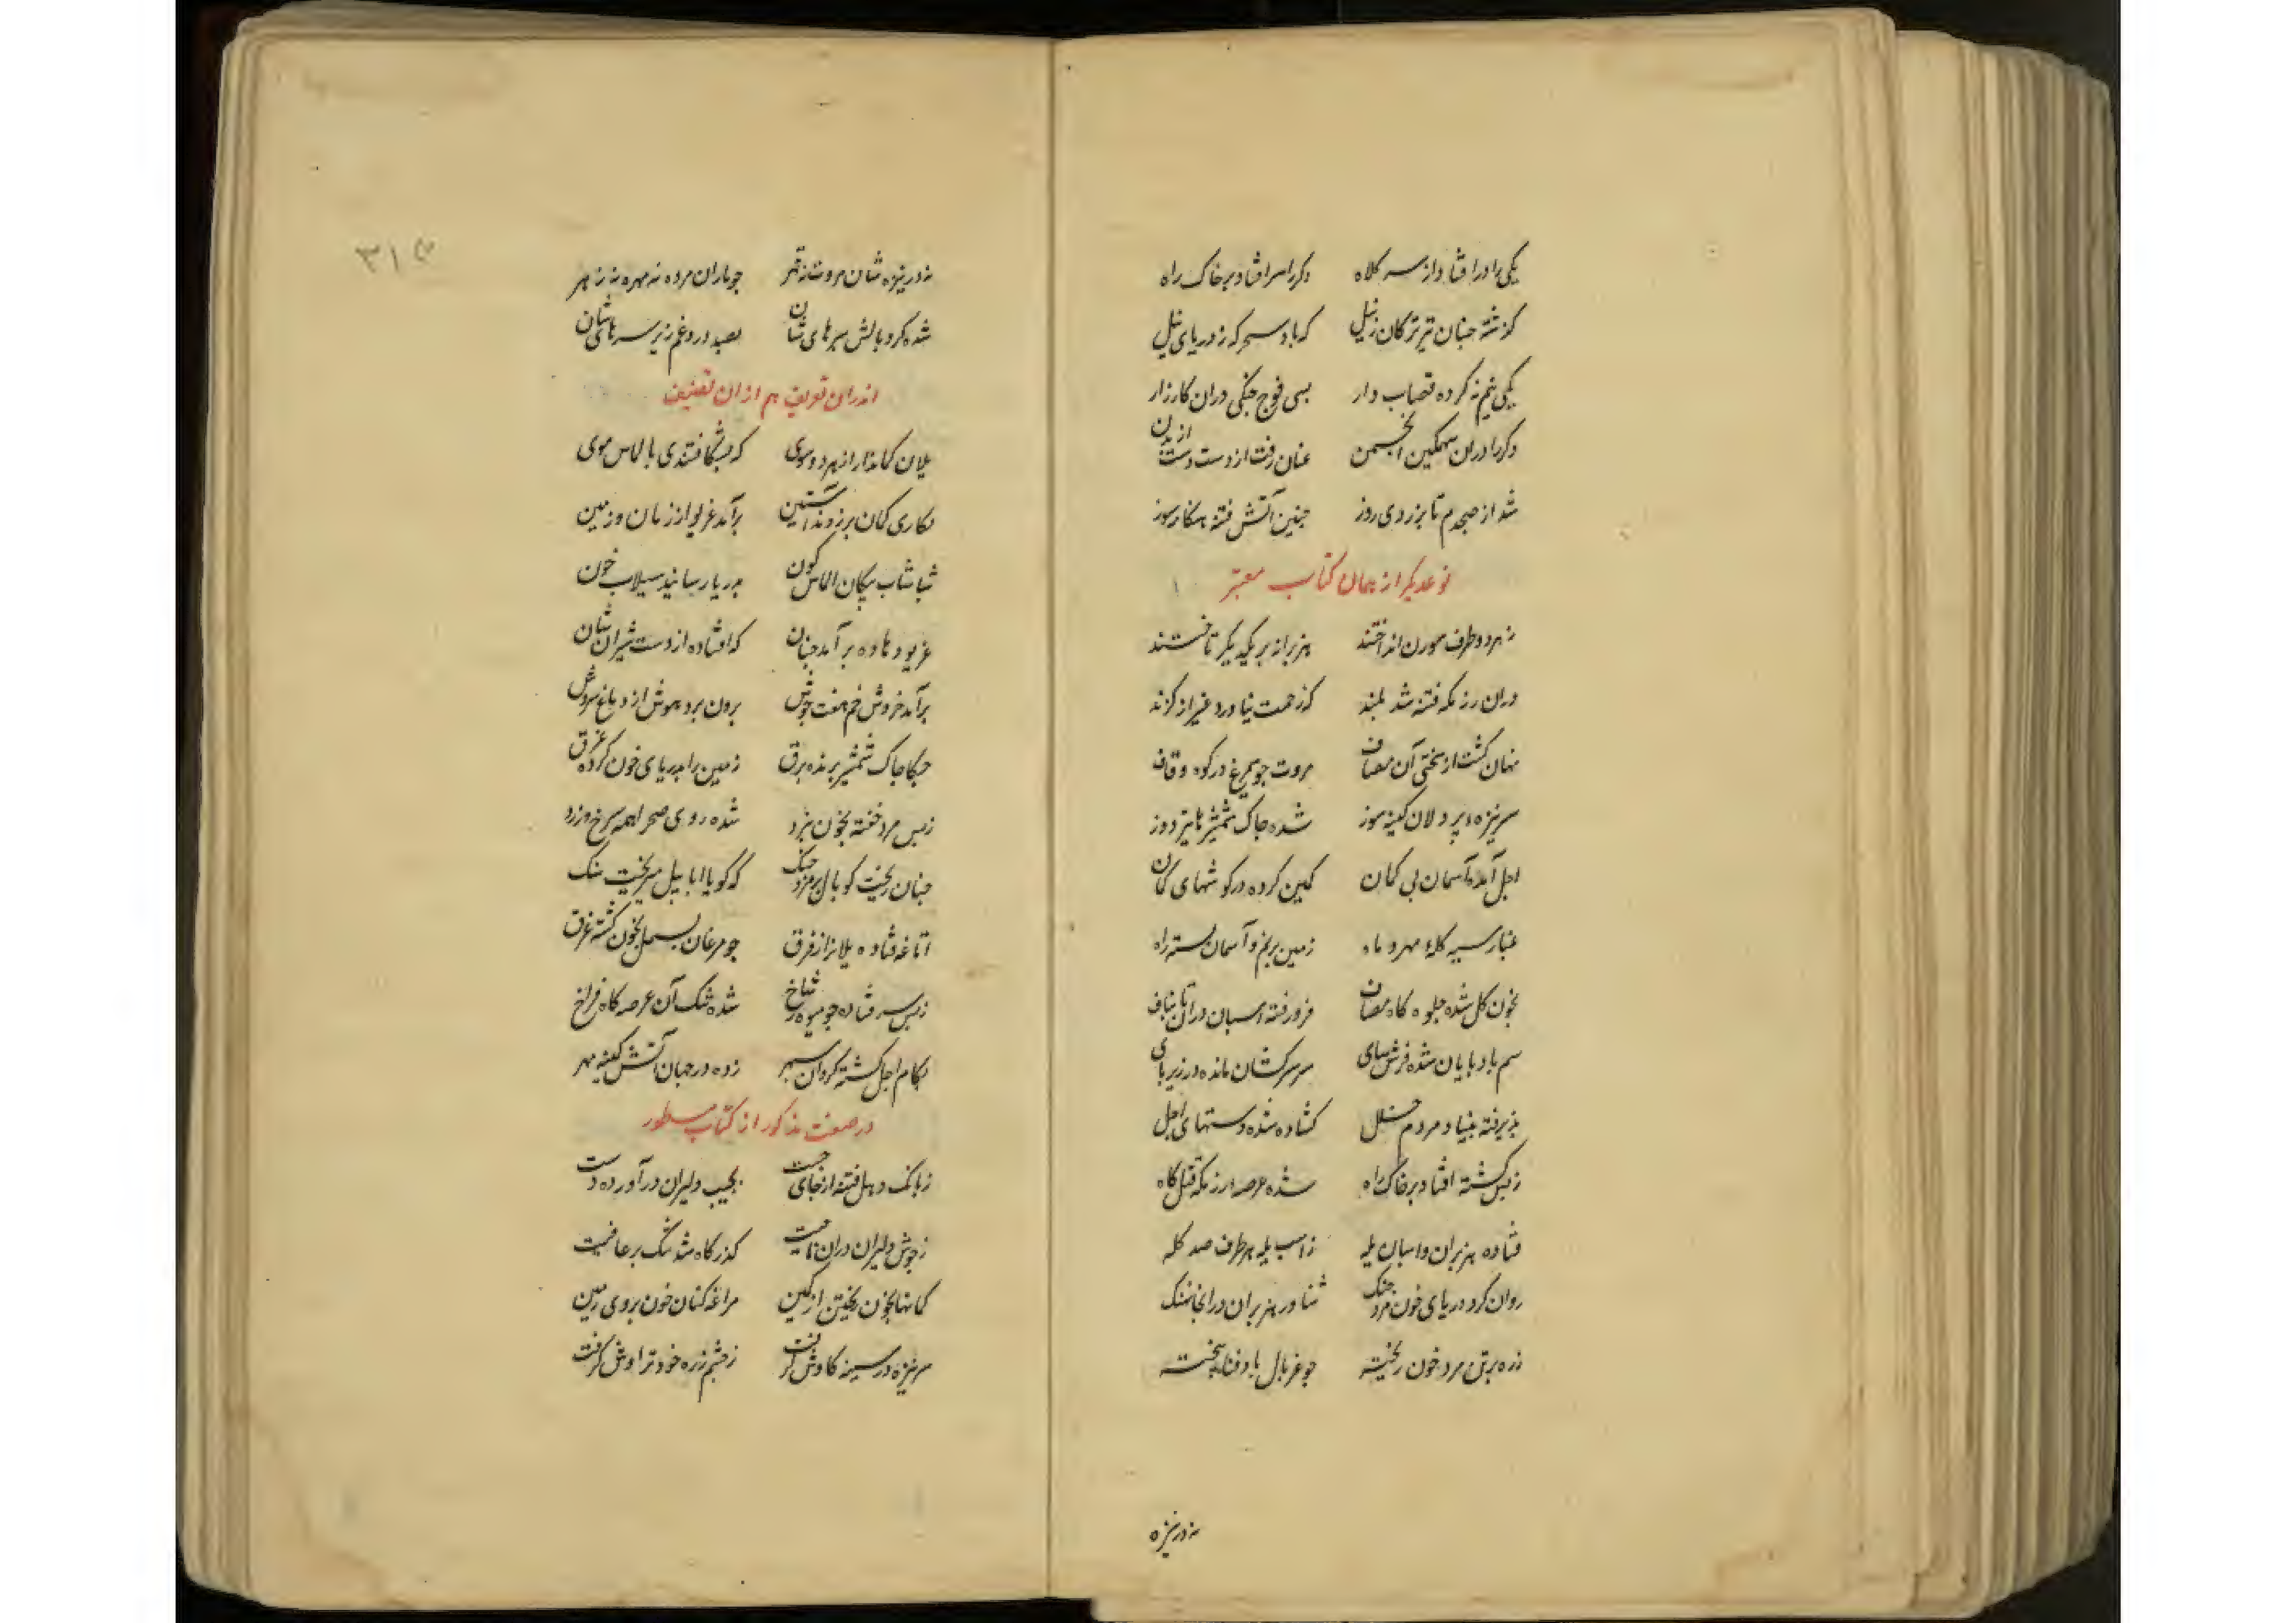 یکی را در افتاد از سر کلاه دکر را سر افتاد بر خاک راه
کزشته جنان تیر ترکان ز پیل که باد سحر که ز دریای نیل
یکی نیم نه کرده قصاب وار بسی فوج جنکی دران کارزار
دکر را دران سهمکین انجمن عنان رفت از دست و دست از بدن
شد از صبحدم تا بزردی روز جنین آتش فتنه هنکامه سوز
نوعدیکر از همان کتاب معتبر
ز هر دو طرف سورن انداختند هزبران بر یکدیکر تاختند
دران رزمکه فتنه شد بلند کز رحمت نیاورد غیر از کزند
نهان کشت از سختی آن مصاف مروت جو سیمرغ در کوه قاف
سر نیزه پر دلان کینه سوز شده جاک شمشیرها نیزه دوز
اجل آمد از آسمان بی کمان کمین کرده در کوشهای کمان
غبار سیه کله مهر و ماه زمین بر یخ و آسمان بسته راه
بخون کل شده جلوه کاه مصاف فرو رفته اسبان دران تا بناف
سم باد پایان شده فرش سای سر سرکشان مانده در زیر پای
پذیرفته بنیاد مردم خلل کشاده شده دستهای اجل
ز بس کشته افتاد بر خاک راه شده عرصه رزمکه قتل کاه
فتاده هزبران و اسبان یله ز اسب یله هر طرف صد کله
روان کرد دریای خون مرد جنک شناور هزبران در انجا نهنک
زره بر تن مرد خون ریخته جو غربال باد فنا بیخته
نه در نیزه
نه در نیزه شان مروت نه قهر جو ماران مرده نه مهره نه زهر
شده کرد بالش سرهای شان بصد درد و غم زیر سرهای شان
اندران تعریف هم ازان تصنیف
یلان کماندار از هر دو سوی که بشکافتندی بالماس موی
بکاری کمان بر زدند آستین برآمد غریو از زمان و زمین
شباشاب پیکان الماس کون بدریا رسانید سیلاب خون
غریو دهاده برآمد جنان که افتاده از دست شیران شان
برآمد خروش خم هفت جوش برون برد هوش از دماغ سروش
جکاجاک شمشیر برنده برق زمین را بدریای خون کرده غرق
ز بس مرد خفته بخون نبرد شده روی صحرا همه سرخ و زرد
جنان ریخت کوپال بر مرد جنک که کویا ابابیل میریخت سنک
اتاغه فتاده یلانرا ز فرق جو مرغان بسمل بخون کشته غرق
ز بس سر فتاده جو میوه ز شاخ شده تنک آن عرصه کاه فراخ
بکام اجل کشته کردان سپر زده در جهان آتش کینه مهر
در صفت مذکور از کتاب مسطور
ز بانک دهل فتنه از جای جست بجیب دلیران درآورده دست
ز جوش دلیران دران ناحیت کذرکاه شد تنک بر عافیت
کمانها بخون ریختن از کمین مراغه کنان خون بروی زمین
سر نیزه در سینه کاوش کرفت ز چشم زره خود تراوش کرفت